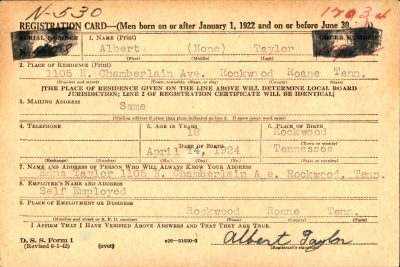 N-530
17034
REGISTRATION CARD—(Men born on or after January 1, 1922 and on or before June 30,
SERIAL NUMBER
1. NAME (Print)
ORDER NUMBER
Albert (None) Taylor
(First) (Middle) (Last)
2. PLACE OF RESIDENCE (Print)
1105 N. Chamberlain Ave. Rockwood Roane Tenn.
(Number and street) (Town, township, village, or city) (County) (State)
[THE PLACE OF RESIDENCE GIVEN ON THE LINE ABOVE WILL DETERMINE LOCAL BOARD
JURISDICTION; LINE 2 OF REGISTRATION CERTIFICATE WILL BE IDENTICAL]
3. MAILING ADDRESS
Same
(Mailing address if other than place indicated on line 2. If same insert word same)
4. TELEPHONE
5. AGE IN YEARS
6. PLACE OF BIRTH
18
Rockwood
DATE OF BIRTH
(Town or county)
April 14, 1924
Tennessee
(Exchange) (Number) (Mo.) (Day) (Yr.) (State or country)
7. NAME AND ADDRESS OF PERSON WHO WILL ALWAYS KNOW YOUR ADDRESS
Taylor 1105 Chamberlain A e. Rockwood, Tenn.
8. EMPLOYER'S NAME AND ADDRESS
Self Employed
9. PLACE OF EMPLOYMENT OR BUSINESS
Rockwood Roane Tenn.
(Number and street or R. F. D. number) (Town) (County) (State)
I AFFIRM THAT I HAVE VERIFIED ABOVE ANSWERS AND THAT THEY ARE TRUE.
D. S. S. Form 1
(Revised 6-1-42) (over) Albert Taylor
(Registrant's signature)